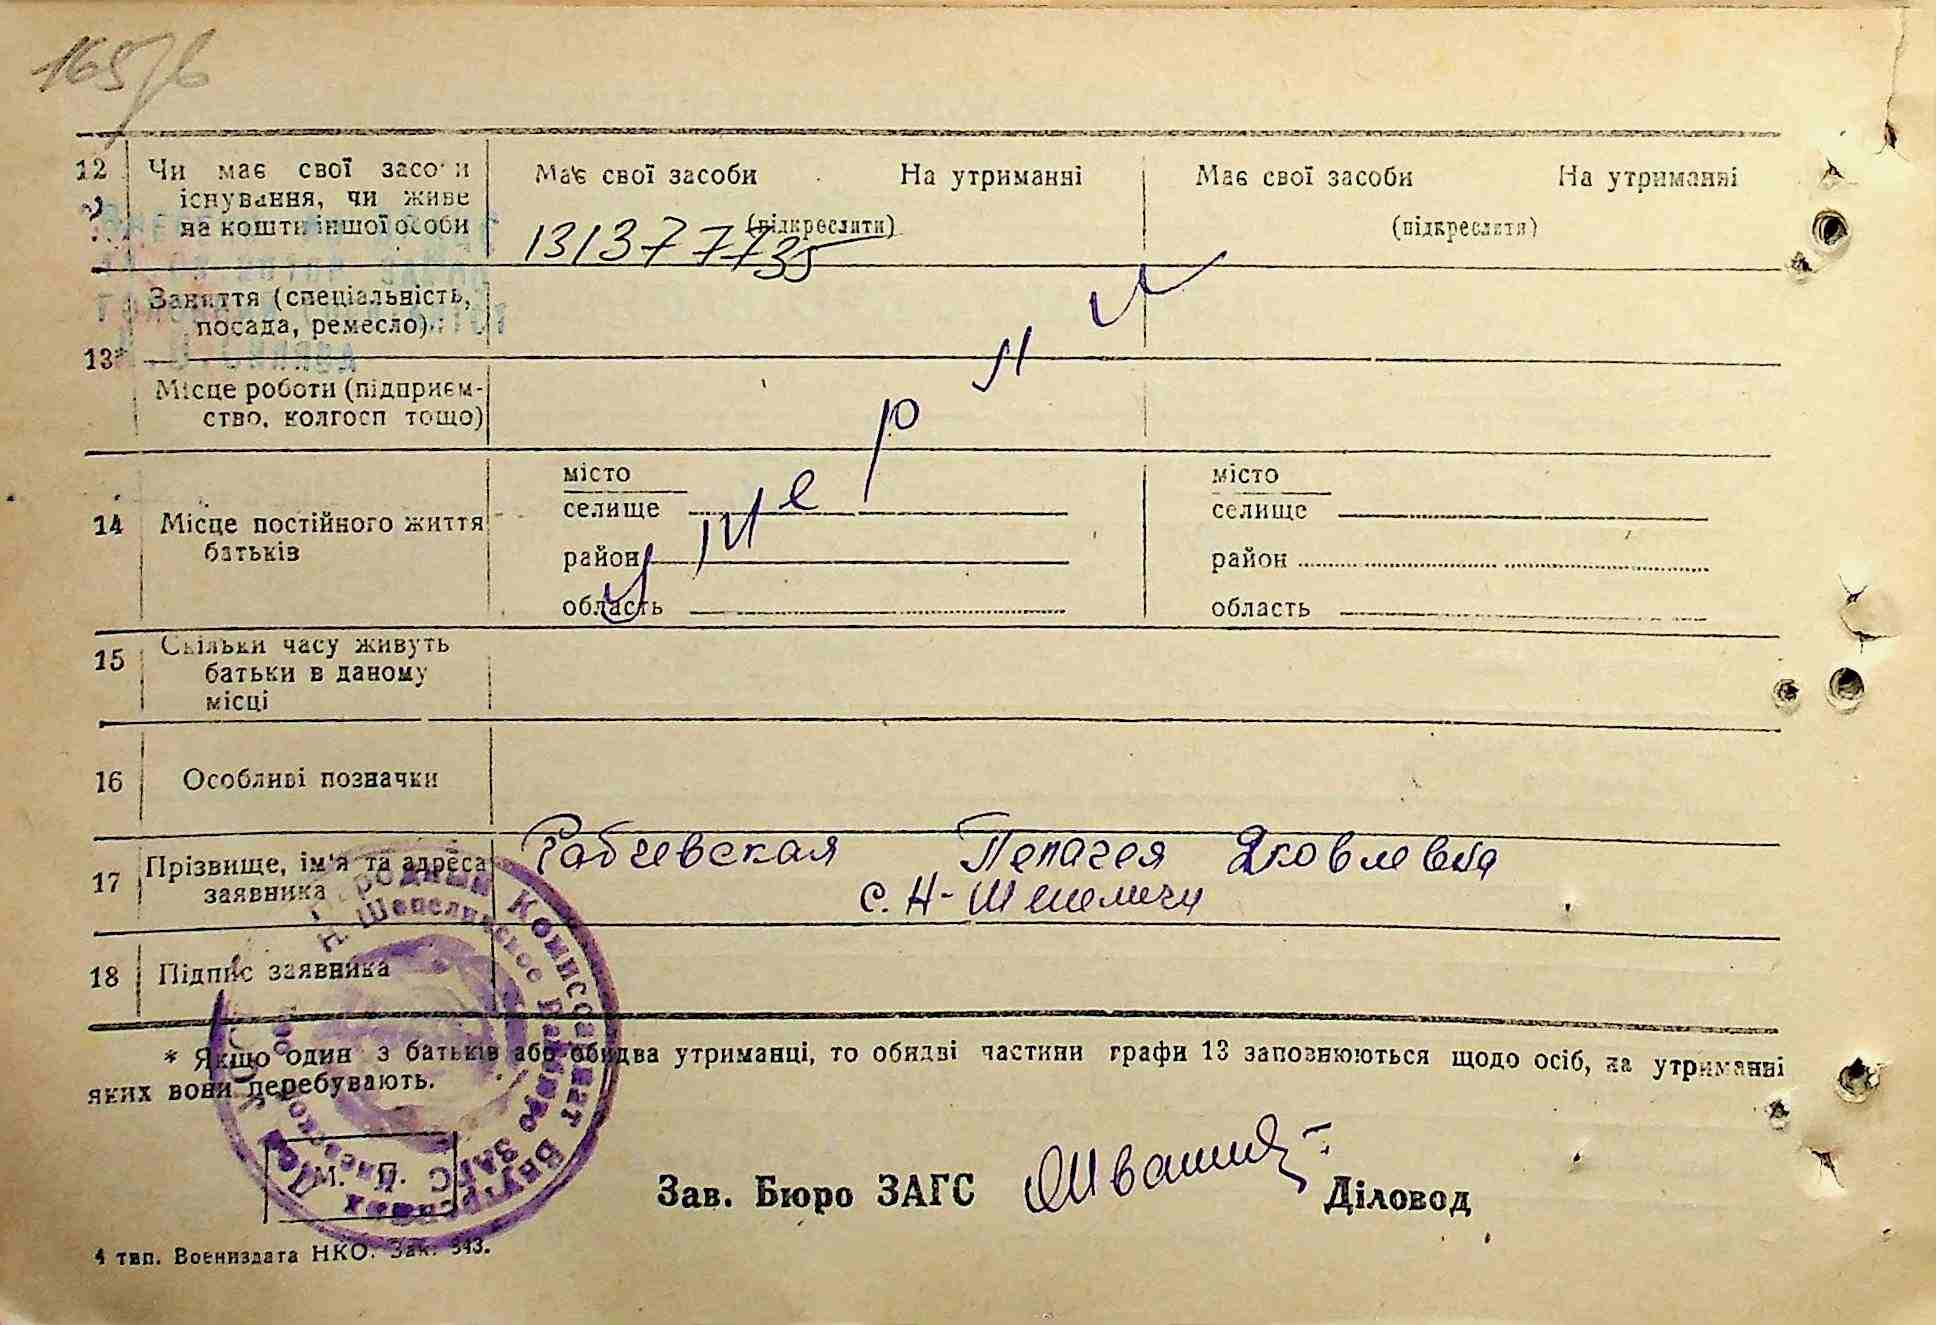 165/6
12 Чи має свої засоби Має свої засоби На утриманні Має свої засоби На утриманні
існування, чи живе
на кошти іншої особи (підкреслити) (підкреслити)
13137 7735
Заняття (спеціальність,
посада, ремесло)
13*
Місце роботи (підприєм-
ство, колгосп тощо)
умерли
місто місто
14 Місце постійного життя селище селище
батьків
район район
область область
15 Скільки часу живуть
батьки в даному
місці
16 Особливі позначки
17 Прізвище, ім'я та адреса Рабчевская Пелагея Яковлевна
заявника с. Н-Шепеличи
18 Підпис заявника
* Якщо один з батьків або обидва утриманці, то обидві частини графи 13 заповнюються щодо осіб, на утриманні
яких вони перебувають.
Народный Комиссариат Внутренних Дел
Н. Шепеличское районное бюро ЗАГС Киевской
М. П.
Зав. Бюро ЗАГС Діловод
4 тип. Воениздата НКО. Зак. 343.